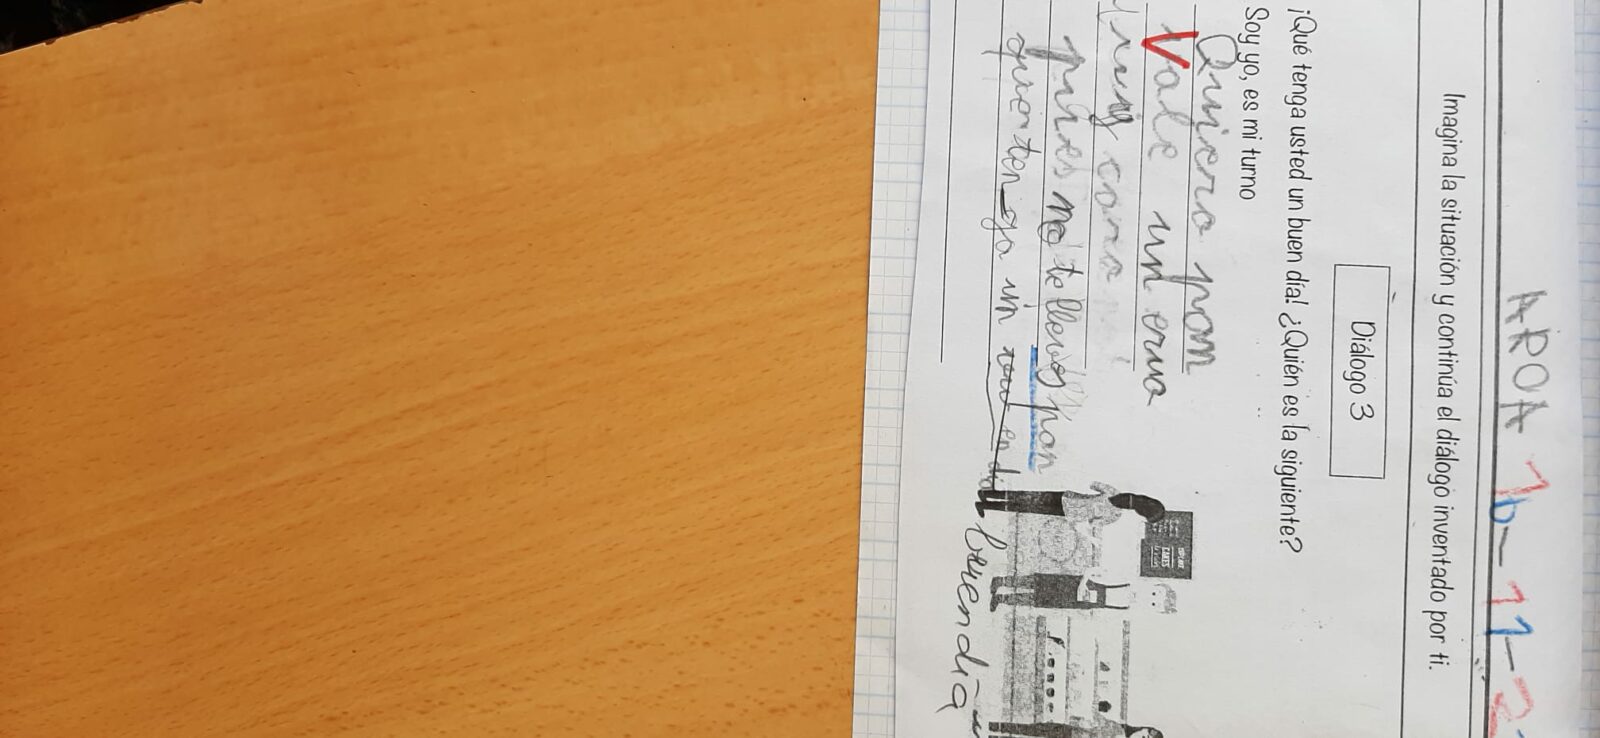 AROA 16-11-2
Imagina la situación y continúa el diálogo inventado por ti.
Diálogo 3
¡Qué tenga usted un buen día! ¿Quién es la siguiente?
Soy yo, es mi turno
Quiero pan
Vale un eruo
muy caro
pues no te llevas pan
que ten ga un
buen día